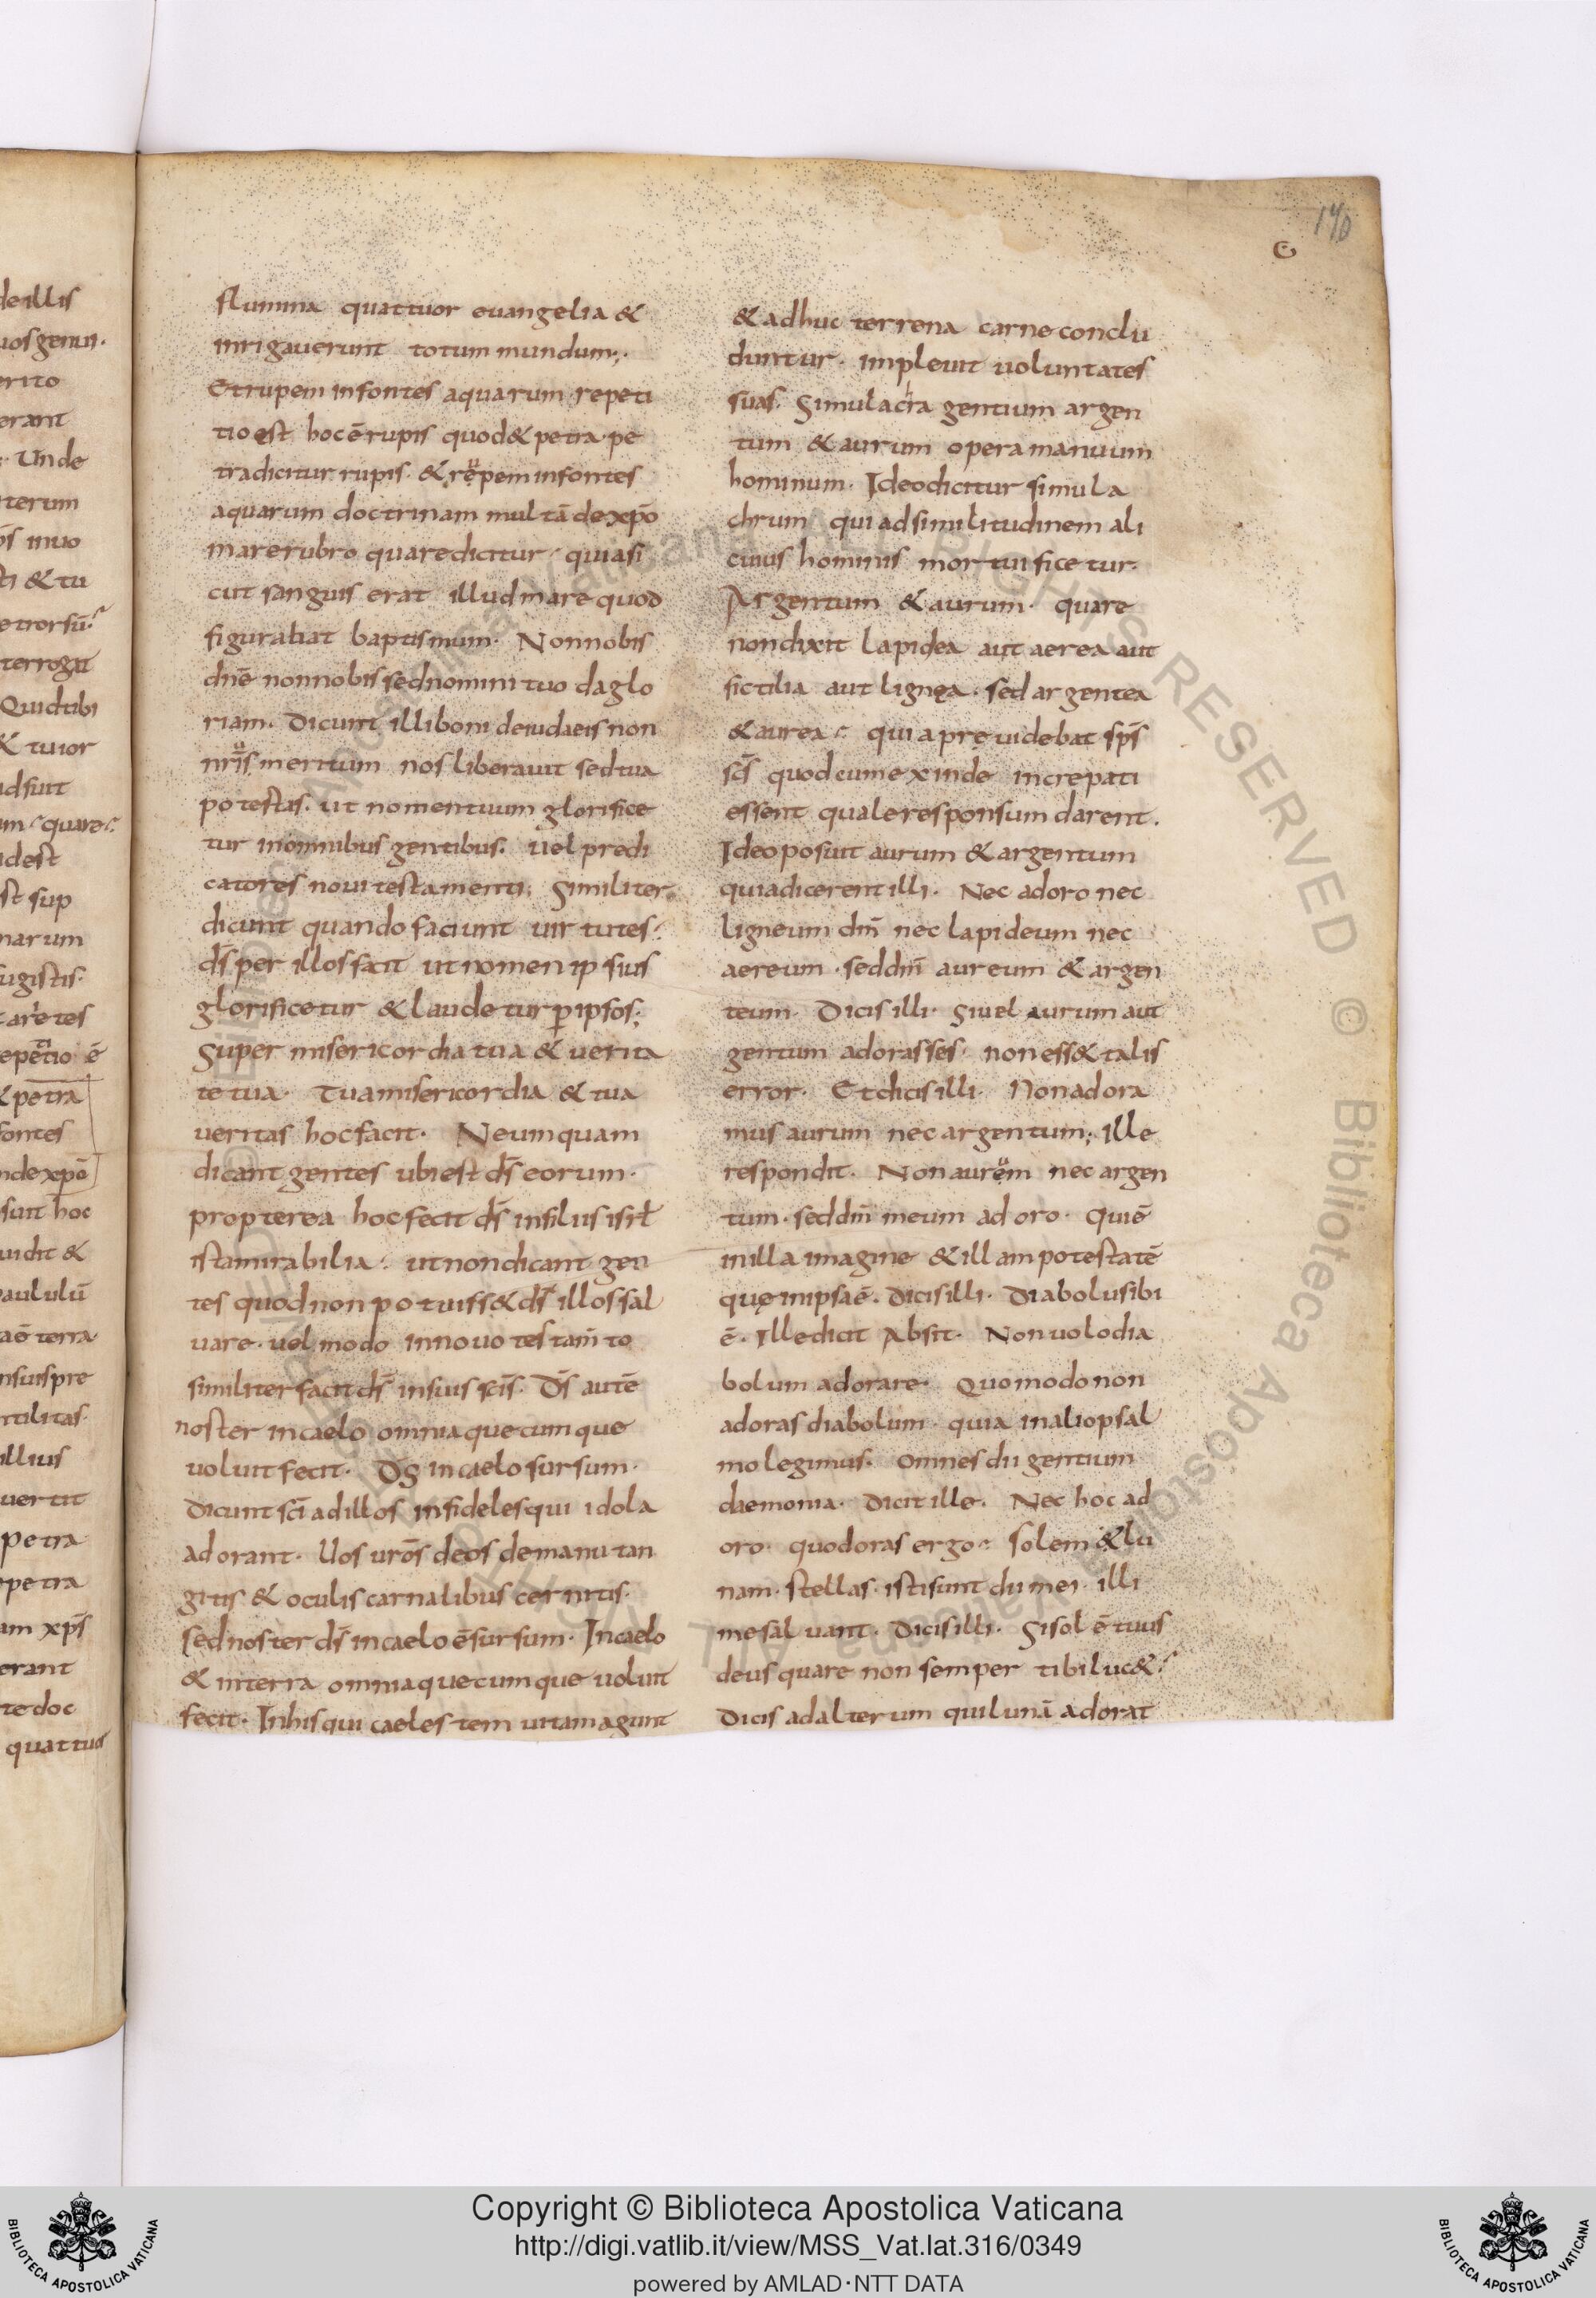 170
flumina quattuor euangelia &
inrigauerunt totum mundum;
Et rupem in fontes aquarum repeti
tio est hoc ē rupis quod & petra pe
tra dicitur rupis. & rupem in fontes
aquarum doctrinam multā de xp̄o
mare rubro quare dicitur quia si
cut sanguis erat illud mare quod
figurabat baptismum. Non nobis
dn̄e non nobis sed nomini tuo da glo
riam. Dicunt illi boni de iudaeis non
nr̄is meritum nos liberauit sed tua
potestas. ut nomen tuum glorifice
tur in omnibus gentibus. uel predi
catores noui testamenti; Similiter
dicunt quando faciunt uirtutes.
ds̄ per illos facit ut nomen ipsius
glorificetur & laudetur ꝑ ipsos;
Super misericordia tua & uerita
te tua. Tua misericordia & tua
ueritas hoc facit. Neumquam
dicant gentes ubi est ds̄ eorum.
propterea hoc fecit ds̄ in filiis isrł
ista mirabilia. ut non dicant gen
tes quod non potuiss& ds̄ illos sal
uare. uel modo in nouo testam̄to
similiter facit ds̄ in suis scīs. Ds̄ autē
noster in caelo omnia quecumque
uoluit fecit. DS in caelo sursum.
Dicunt scī ad illos infideles qui idola
adorant. Uos ur̄os deos de manu tan
gitis & oculis carnalibus cernitis.
sed noster ds̄ in caelo ē sursum. In caelo
& in terra omnia quecumque uoluit
fecit. In his qui caelestem uitam agunt
& adhuc terrena carne conclu
duntur. impleuit uoluntates
suas. Simulacra gentium argen
tum & aurum opera manuum
hominum. Ideo dicitur simula
chrum qui ad similitudinem ali
cuius hominis mortui ficetur.
Argentum & aurum. quare
non dixit lapidea aut aerea aut
fictilia aut lignęa. sed argentea
& aurea. quia pręuidebat sps̄
scs̄ quod cum exinde increpati
essent quale responsum darent.
Ideo posuit aurum & argentum
quia dicerent illi. Nec adoro nec
ligneum dm̄ nec lapideum nec
aereum. sed dm̄ aureum & argen
teum. Dicis illi. Si uel aurum aut
gentum adorasses. non ess& talis
error. Et dicis illi. Non adora
mus aurum nec argentum; ille
respondit. Non aurum nec argen
tum. sed dm̄ meum adoro. Qui ē
in illa imagine & illam potestatē
quę in ipsa ē. Dicis illi. Diabolus ibi
ē. Ille dicit Absit. Non uolo dia
bolum adorare. Quomodo non
adoras diabolum. quia in alio psal
mo legimus. Omnes dii gentium
daemonia. Dicit ille. Nec hoc ad
oro. quod oras ergo. solem & lu
nam. stellas. isti sunt dii mei. illi
me saluant. Dicis illi. Si sol ē tuus
deus quare non semper tibi luc&.
Dicis ad alterum qui lunā adorat
Copyright © Biblioteca Apostolica Vaticana
http://digi.vatlib.it/view/MSS_Vat.lat.316/0349
powered by AMLAD·NTT DATA